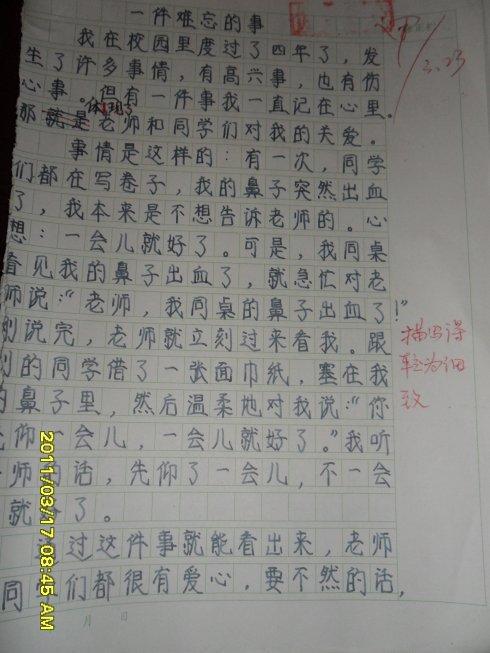 一件难忘的事
我在校园里度过了四年了，发
生了许多事情，有高兴事，也有伤
心事。但有一件事我一直记在心里。
体现了
那就是老师和同学们对我的关爱。
事情是这样的：有一次，同学
们都在写卷子，我的鼻子突然出血
了，我本来是不想告诉老师的。心
想：一会儿就好了。可是，我同桌
看见我的鼻子出血了，就急忙对老
师说：“老师，我同桌的鼻子出血了！”
刚说完，老师就立刻过来看我。跟
别的同学借了一张面巾纸，塞在我
的鼻子里，然后温柔地对我说：“你
先仰一会儿，一会儿就好了。”我听
师的话，先仰了一会儿，不一会
就好了。
过这件事就能看出来，老师
同学们都很有爱心，要不然的话，
月 日
3.23
描写得
较为细
致
2011/03/17 08:45 AM